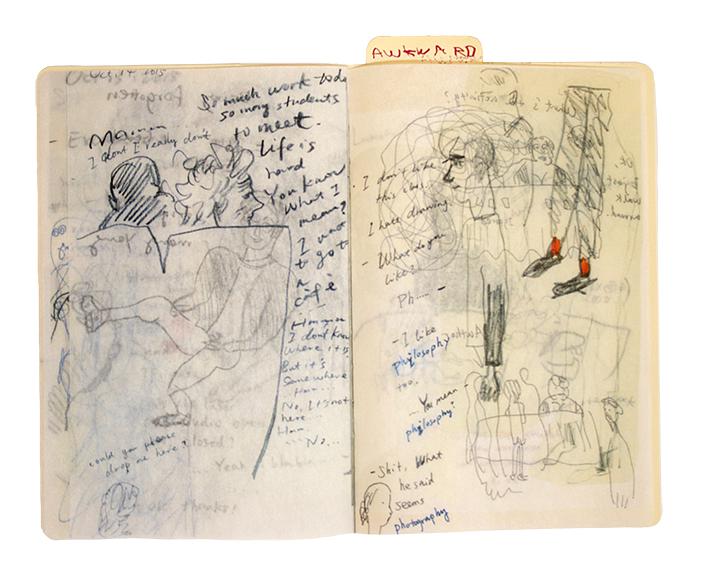 AWKWARD
Oct. 14. 2015
So much work toda
so many students
to meet.
Life is
hard
You know
What I
mean?
I want
to go to
a
café
I dont I really don't
I don't know
Where it is.
But it's
Somewhere
... Hmm ...
No, It's not
here.
Hmm...
... No...
could you please
drop me here?
- I don't like
this class..
I hate drawing.
- What do you
like?
Ph..... -
- I like
philosophy
too.
... You mean
philosophy?
- Shit, What
he said
seems
photography